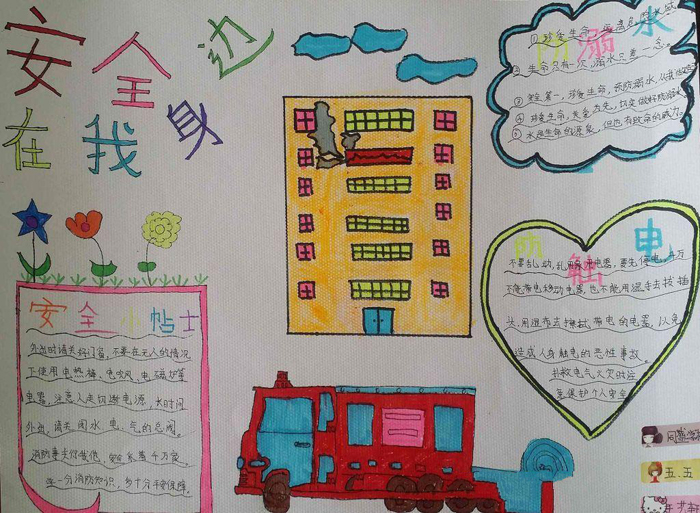 安全在我身边
防溺水
①珍爱生命,远离危险水域
②生命只有一次,溺水只差一念。
③安全第一,珍爱生命,预防溺水,从我做起
④珍爱生命,安全为先,切实做好防溺水
⑤水是生命的源泉,但也有致命的威力。
防触电
不要乱动、乱用家用电器,要先停电,千万
不能带电移动电器,也不能用湿手去拔插
头,用湿布去擦拭带电的电器,以免
造成人身触电的恶性事故。
扑救电气火灾时注
意保护个人安全
安全小帖士
外出时请关好门窗,不要在无人的情况
下使用电热棒、电吹风、电磁炉等
电器,注意人走切断电源,长时间
外出,请关闭水电气的总阀。
消防事关你我他,安全系着千万家。
学一分消防知识,多十分平安保障。
五.五